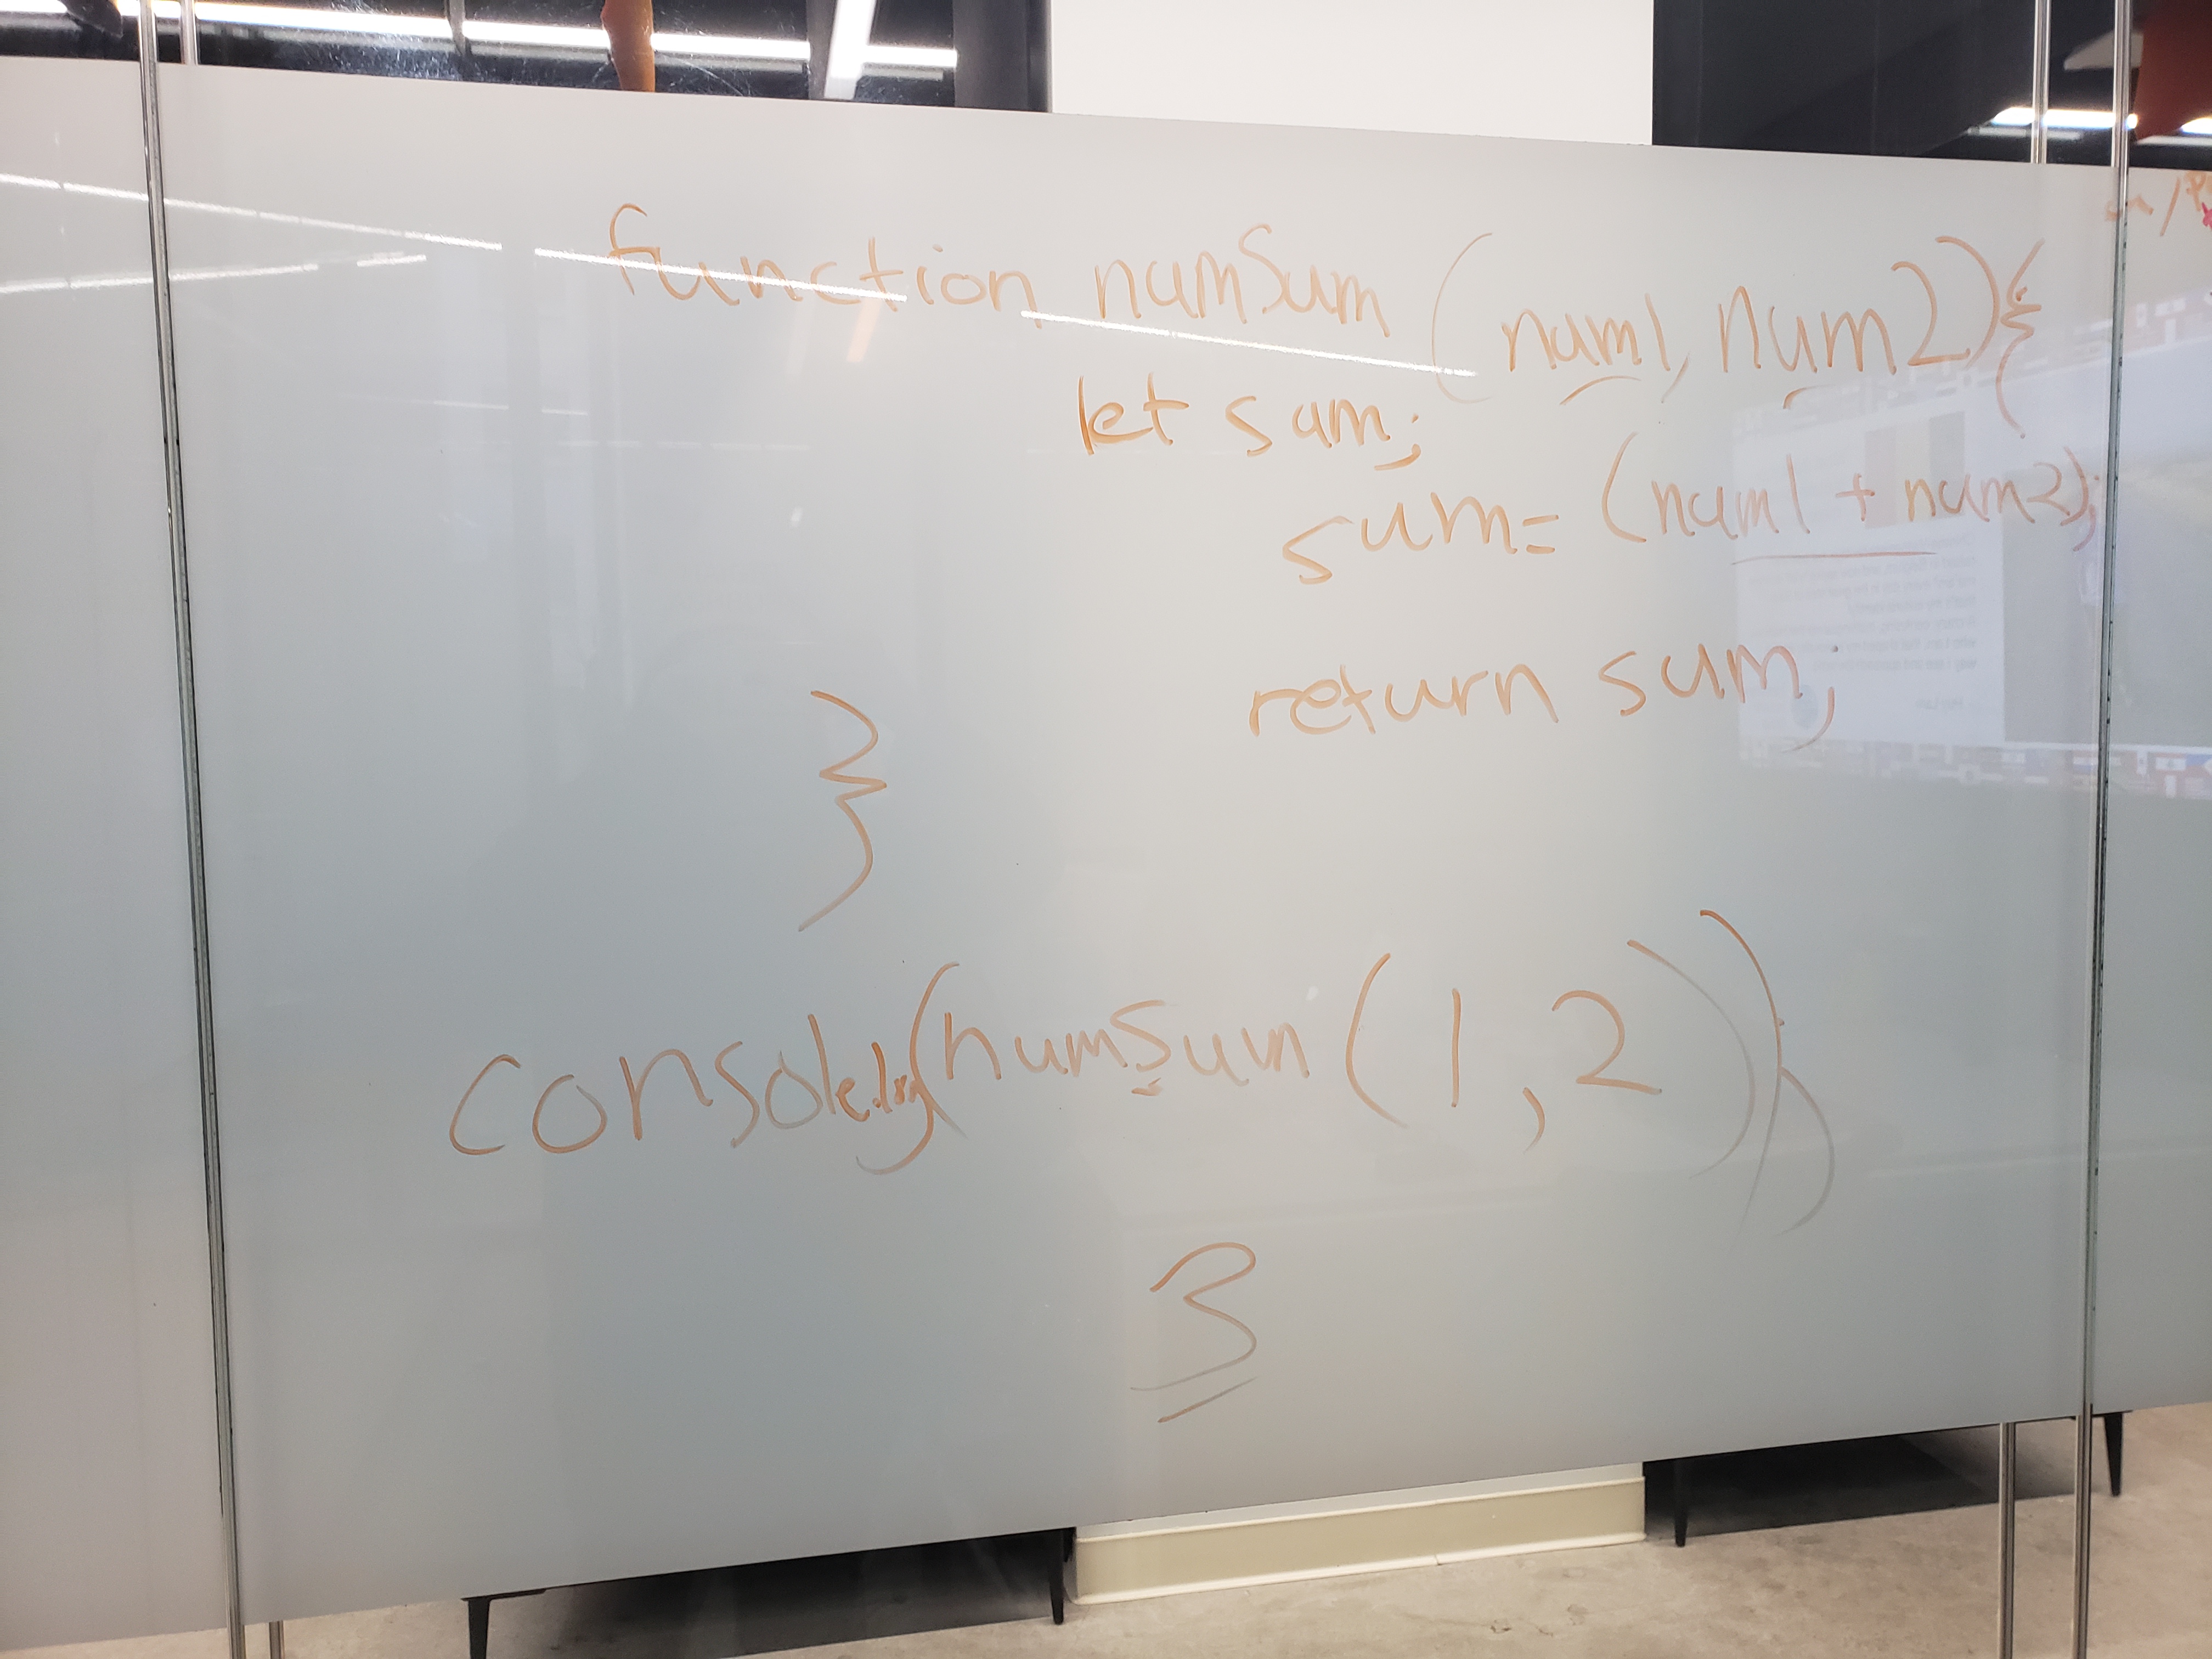 function numSum (num1, num2){
let sum;
sum= (num1 + num2);
return sum;
}
console.log(numSum(1,2));
3